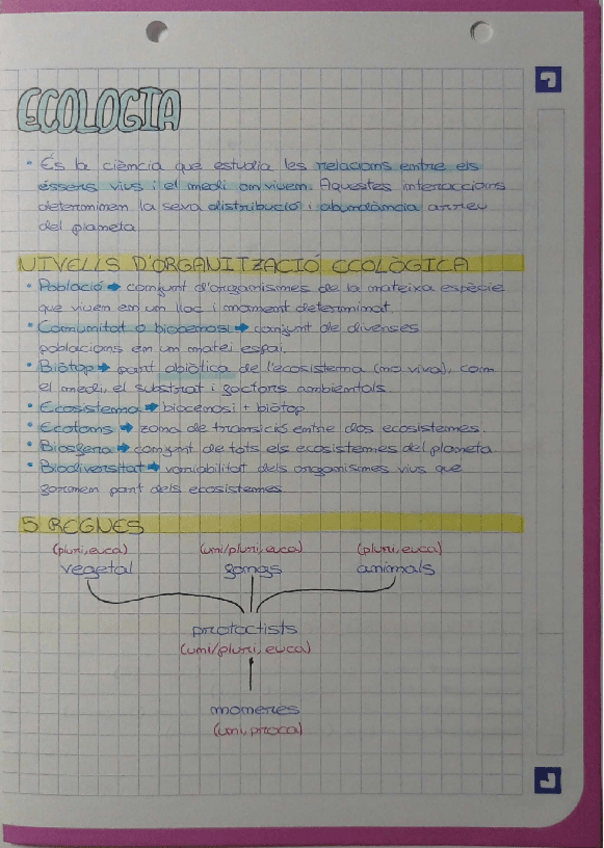 ECOLOGIA
• És la ciència que estudia les relacions entre els
éssers vius i el medi on vivem. Aquestes interaccions
determinen la seva distribució i abundància arreu
del planeta
NIVELLS D'ORGANITZACIÓ ECOLÒGICA
• Població → conjunt d'organismes de la mateixa espècie
que viuen en un lloc i moment determinat.
• Comunitat o biocenosi → conjunt de diverses
poblacions en un mateix espai.
• Biòtop → part abiòtica de l'ecosistema (no viva), com
el medi, el substrat i factors ambientals.
• Ecosistema → biocenosi + biòtop
• Ecotons → zona de transició entre dos ecosistemes.
• Biosfera → conjunt de tots els ecosistemes del planeta
• Biodiversitat → variabilitat dels organismes vius que
formen part dels ecosistemes.
5 REGNES
(pluri, euca) (uni/pluri, euca) (pluri, euca)
vegetal fongs animals
protoctists
(uni/pluri, euca)
moneres
(uni, proca)